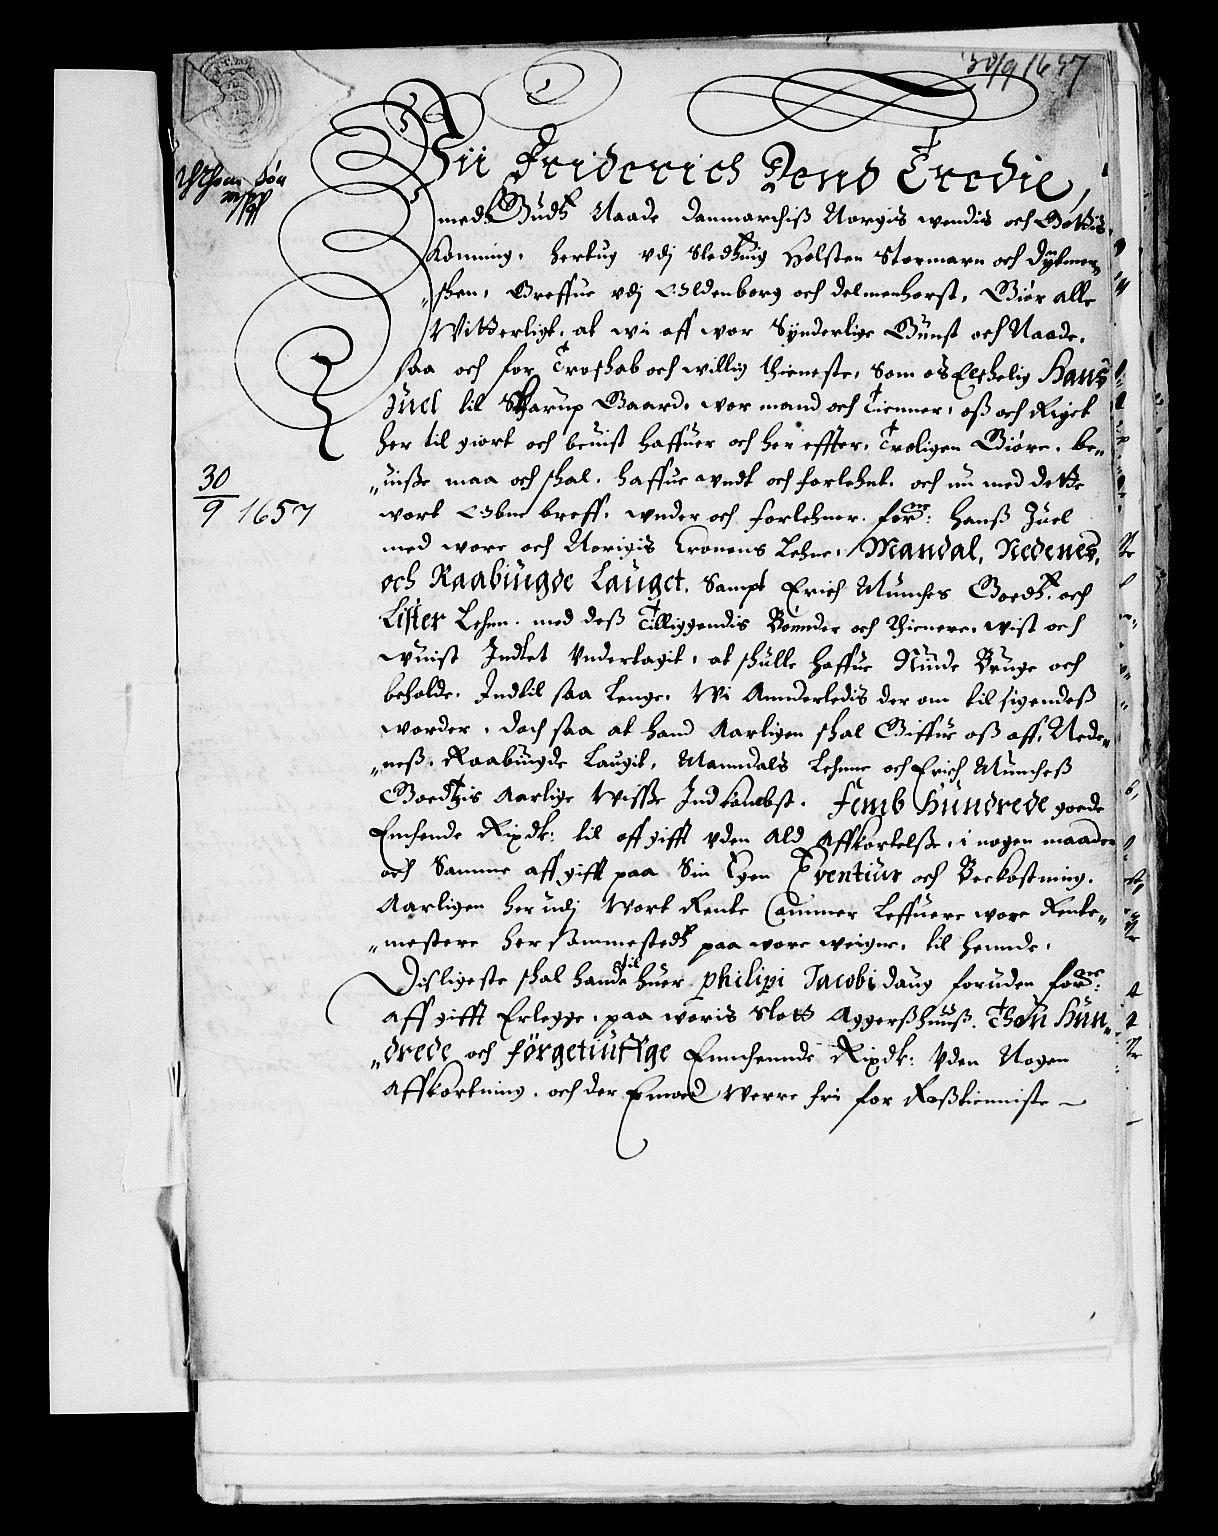 30/9 1657
Vii Friderich Dend Tredie,
medh Gudß Naade Danmarchiß Norgis wendis och Gottis
Konning, hertug vdj Sleduig Holsten Stormarn och Dytmer,,
,,sken, Greffue vdj Oldenborg och Delmenhorst, Giør alle
Witterligt, at wi aff wor Synderlige Gunst och Naade,
saa och for Troskab och willig thieneste, som os Elskelig Hans
Juel til Skarup Gaard, wor mand och Tienner, oß och Riget
her til giort och beuist haffuer och her effter, Troligen Giøre, be,,
,,uiße maa och skal, haffue vndt och forlehnt, och nu med dette
wort Obne breff, vnder och forlehner. forne: Hanß Juel
med wore och Norigis Cronens Lehne, Mandal, Nedenes,
och Raabiugde Lauget, Sampt Erich Munches Goedß, och
Lister Lehn. med deß Tilliggendis Bønder och Thienere, wist och
wuist Indtet Vndertagit, at skulle haffue Niude Bruge och
beholde, Indtil saa lenge, Wi Annderledis der om til sigendeß
worder, doch saa at hand Aarligen skal Giffue oß aff, Nede,,
,,neß, Raabiugde Laugit, Manndals Lehnne och Erich Muncheß
Goedtzis Aarlige Wisse Indkombst, Femb Hundrede goede
Enchende Rixdlr: til affgifft vden ald Affkortelße, i nogen maader
och Samme affgifft paa Sin Egen Eventiur och Beckostning,
Aarligen her udj Wort Rente Cammer Leffuere wore Rente,,
,,mestere her sammestedß paa wore weigne, til hennde,
Disligeste skal hand til huer Philipi Jacobi daug foruden forne:
affgifft Erlegge, paa woris Slott Aggerßhuuß. Thou Hun,,
,,drede och førgetiuffge Ennchennde Rixdlr: Vden Nogen
Affkortning, och der Emoed Werre fri for Roßtienniste
30
9 1657